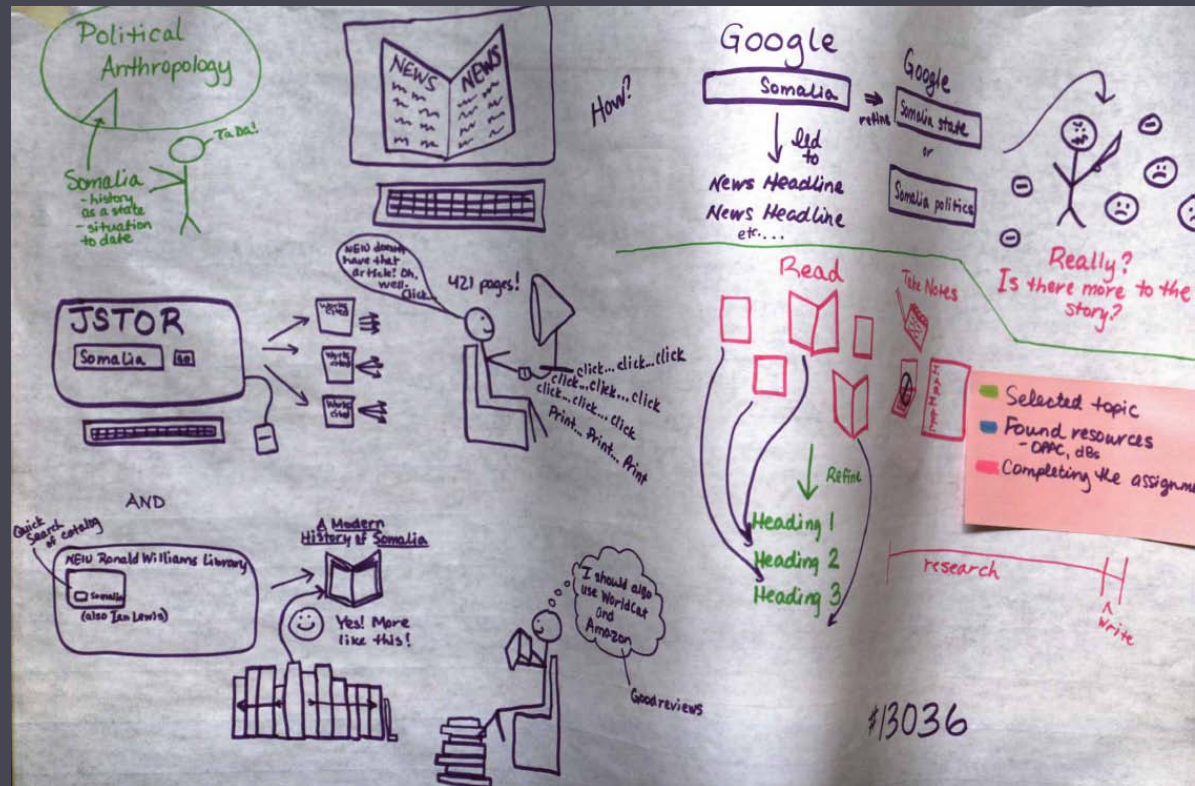 Political
Anthropology
TaDa!
Somalia
- history
as a state
- situation
to date
NEWS NEWS
How?
Google
Somalia
refine
Google
Somalia state
or
Somalia politics
led
to
News Headline
News Headline
etc....
Really?
Is there more to the
story?
JSTOR
Somalia
GO
Works
cited
Works
cited
Works
cited
NEIU doesn't
have that
article? Oh,
well.
Click...
421 pages!
click...click...click
click...click...click
click...click...click
Print... Print... Print
Read
Take Notes
Refine
Heading 1
Heading 2
Heading 3
Selected topic
Found resources
- OPAC, dBs
Completing the assignme
research
Write
AND
Quick
Search
of catalog
NEIU Ronald Williams Library
Somalia
(also Ian Lewis)
A Modern
History of Somalia
Yes! More
like this!
I should also
use WorldCat
and
Amazon
Good reviews
#13036